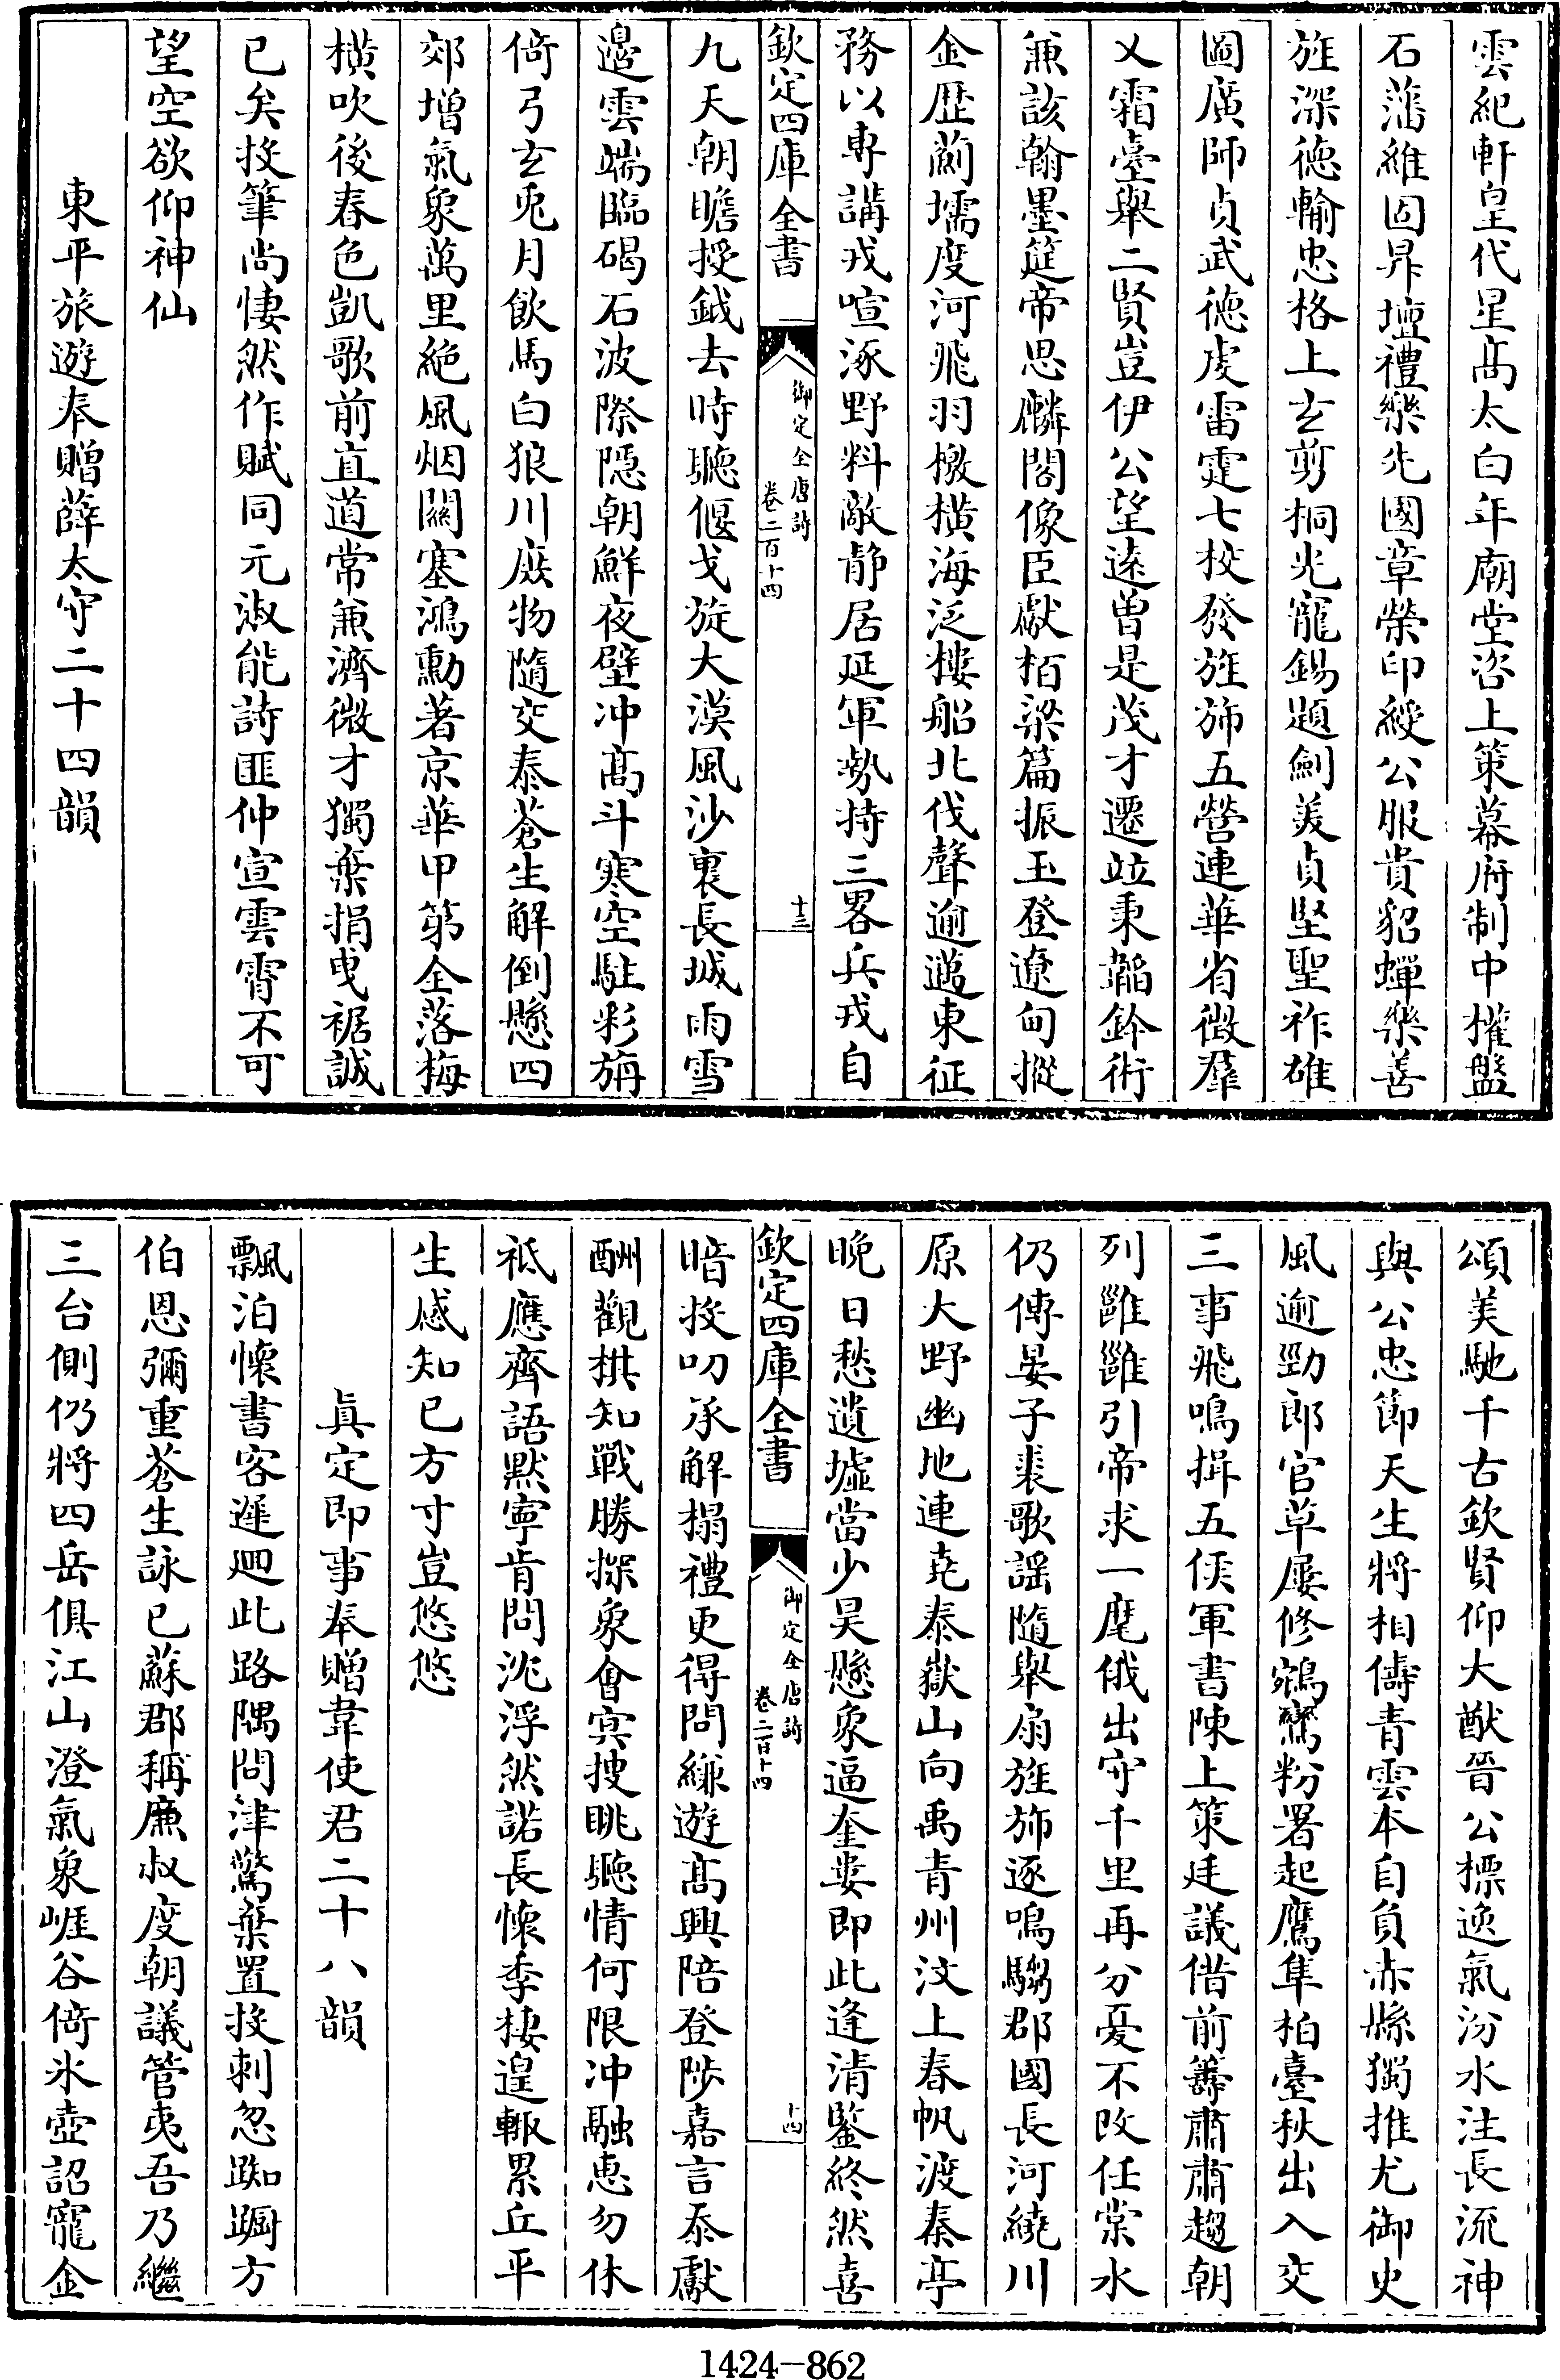 雲紀軒皇代星髙太白年廟堂咨上策幕府制中權盤
石藩維固昇壇禮樂先國章榮印綬公服貴貂蟬樂善
旌深徳輸忠格上玄剪桐光寵錫題劍美貞堅聖祚雄
圖廣師貞武徳虔雷霆七校發旌斾五營連華省徴羣
乂霜臺舉二賢豈伊公望逺曽是茂才遷竝秉韜鈐術
兼該翰墨筵帝思麟閣像臣獻栢梁篇振玉登遼甸摐
金歴薊壖度河飛羽檄横海泛樓船北伐聲逾邁東征
務以專講戎喧涿野料敵静居延軍勢持三畧兵戎自
欽定四庫全書
御定全唐詩
卷二百十四
十三
九天朝瞻授鉞去時聽偃戈旋大漠風沙裏長城雨雪
邉雲端臨碣石波際隠朝鮮夜壁冲髙斗寒空駐彩旃
倚弓玄兎月飲馬白狼川庶物隨交泰蒼生解倒懸四
郊増氣象萬里絶風烟闗塞鴻勳著京華甲第全落梅
横吹後春色凱歌前直道常兼濟微才獨棄捐曳裾誠
已矣投筆尚悽然作賦同元淑能詩匪仲宣雲霄不可
望空欲仰神仙
東平旅遊奉贈薛太守二十四韻
頌美馳千古欽賢仰大猷晉公標逸氣汾水注長流神
與公忠節天生將相儔青雲本自負赤縣獨推尤御史
風逾勁郎官草屢修鵷鸞粉署起鷹隼柏臺秋出入交
三事飛鳴揖五侯軍書陳上策廷議借前籌肅肅趨朝
列雝雝引帝求一麾俄出守千里再分憂不改任棠水
仍傳晏子裘歌謡隨舉扇旌斾逐鳴騶郡國長河繞川
原大野幽地連堯泰嶽山向禹青州汶上春帆渡秦亭
晚日愁遺墟當少昊懸象逼奎婁即此逢清鑒終然喜
欽定四庫全書
御定全唐詩
卷二百十四
十四
暗投叨承解榻禮更得問縑遊髙興陪登陟嘉言忝獻
酬觀棋知戰勝探象會㝠搜眺聽情何限冲融恵勿休
祗應齊語黙寧肯問沈浮然諾長懷季棲遑輙累丘平
生感知已方寸豈悠悠
眞定即事奉贈韋使君二十八韻
飄泊懷書客遲迴此路隅問津驚棄置投刺忽踟蹰方
伯恩彌重蒼生詠已蘇郡稱亷叔度朝議管夷吾乃繼
三台側仍將四岳俱江山澄氣象崕谷倚氷壺詔寵金
1424-862